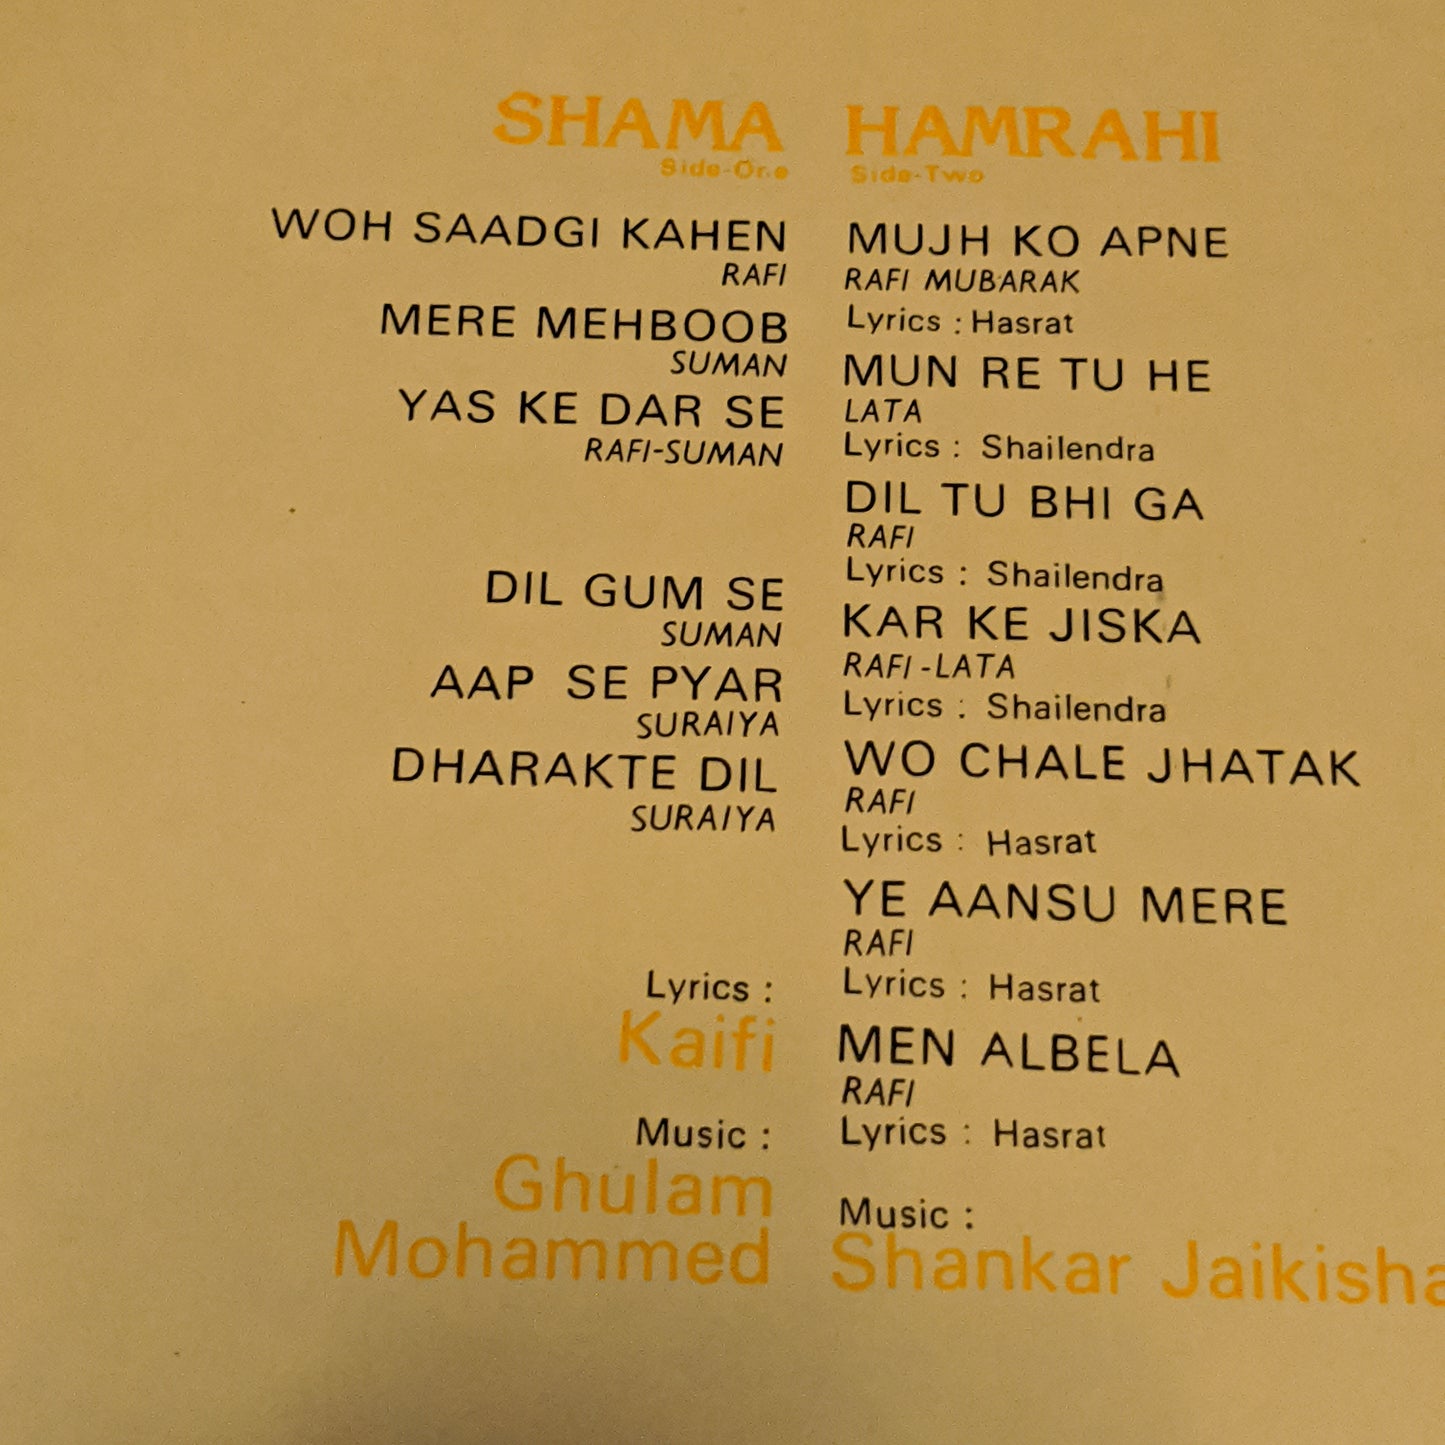 SHAMA
Side-One
WOH SAADGI KAHEN
RAFI
MERE MEHBOOB
SUMAN
YAS KE DAR SE
RAFI-SUMAN
DIL GUM SE
SUMAN
AAP SE PYAR
SURAIYA
DHARAKTE DIL
SURAIYA
Lyrics :
Kaifi
Music :
Ghulam
Mohammed
HAMRAHI
Side-Two
MUJH KO APNE
RAFI MUBARAK
Lyrics : Hasrat
MUN RE TU HE
LATA
Lyrics : Shailendra
DIL TU BHI GA
RAFI
Lyrics : Shailendra
KAR KE JISKA
RAFI-LATA
Lyrics : Shailendra
WO CHALE JHATAK
RAFI
Lyrics : Hasrat
YE AANSU MERE
RAFI
Lyrics : Hasrat
MEN ALBELA
RAFI
Lyrics : Hasrat
Music :
Shankar Jaikisha